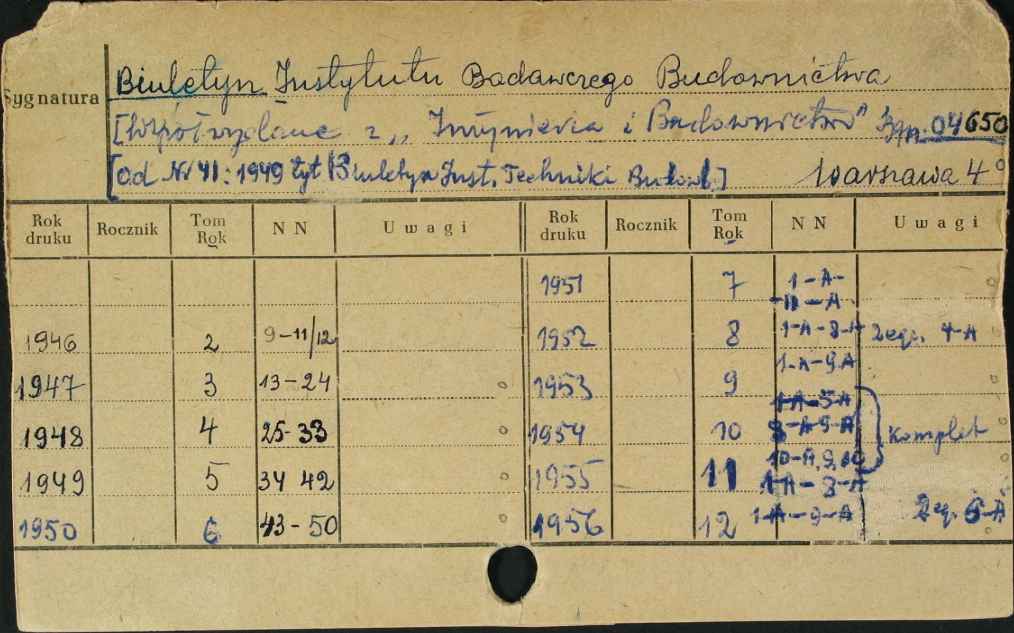 Sygnatura
Biuletyn Instytutu Badawczego Budownictwa
[współwydane z „Inżynieria i Budownictwo" 04650
[od Nr 41: 1949 tyt Biuletyn Inst. Techniki Budowl.] Warszawa 4°
Rok druku Rocznik Tom Rok NN Uwagi Rok druku Rocznik Tom Rok NN Uwagi
1951 7 1-A-
11-A
1946 2 9-11/12 1952 8 1-A-8-A 2egz. 4-A
1-A-9A
1947 3 13-24 1953 9
1-A-5-A
1948 4 25-33 1954 10 8-A-9-A komplet
10-A,
1949 5 34 42 1955 11 1-A-8-A
1950 6 43-50 1956 12 1-A-9-A 2eg. 6-A